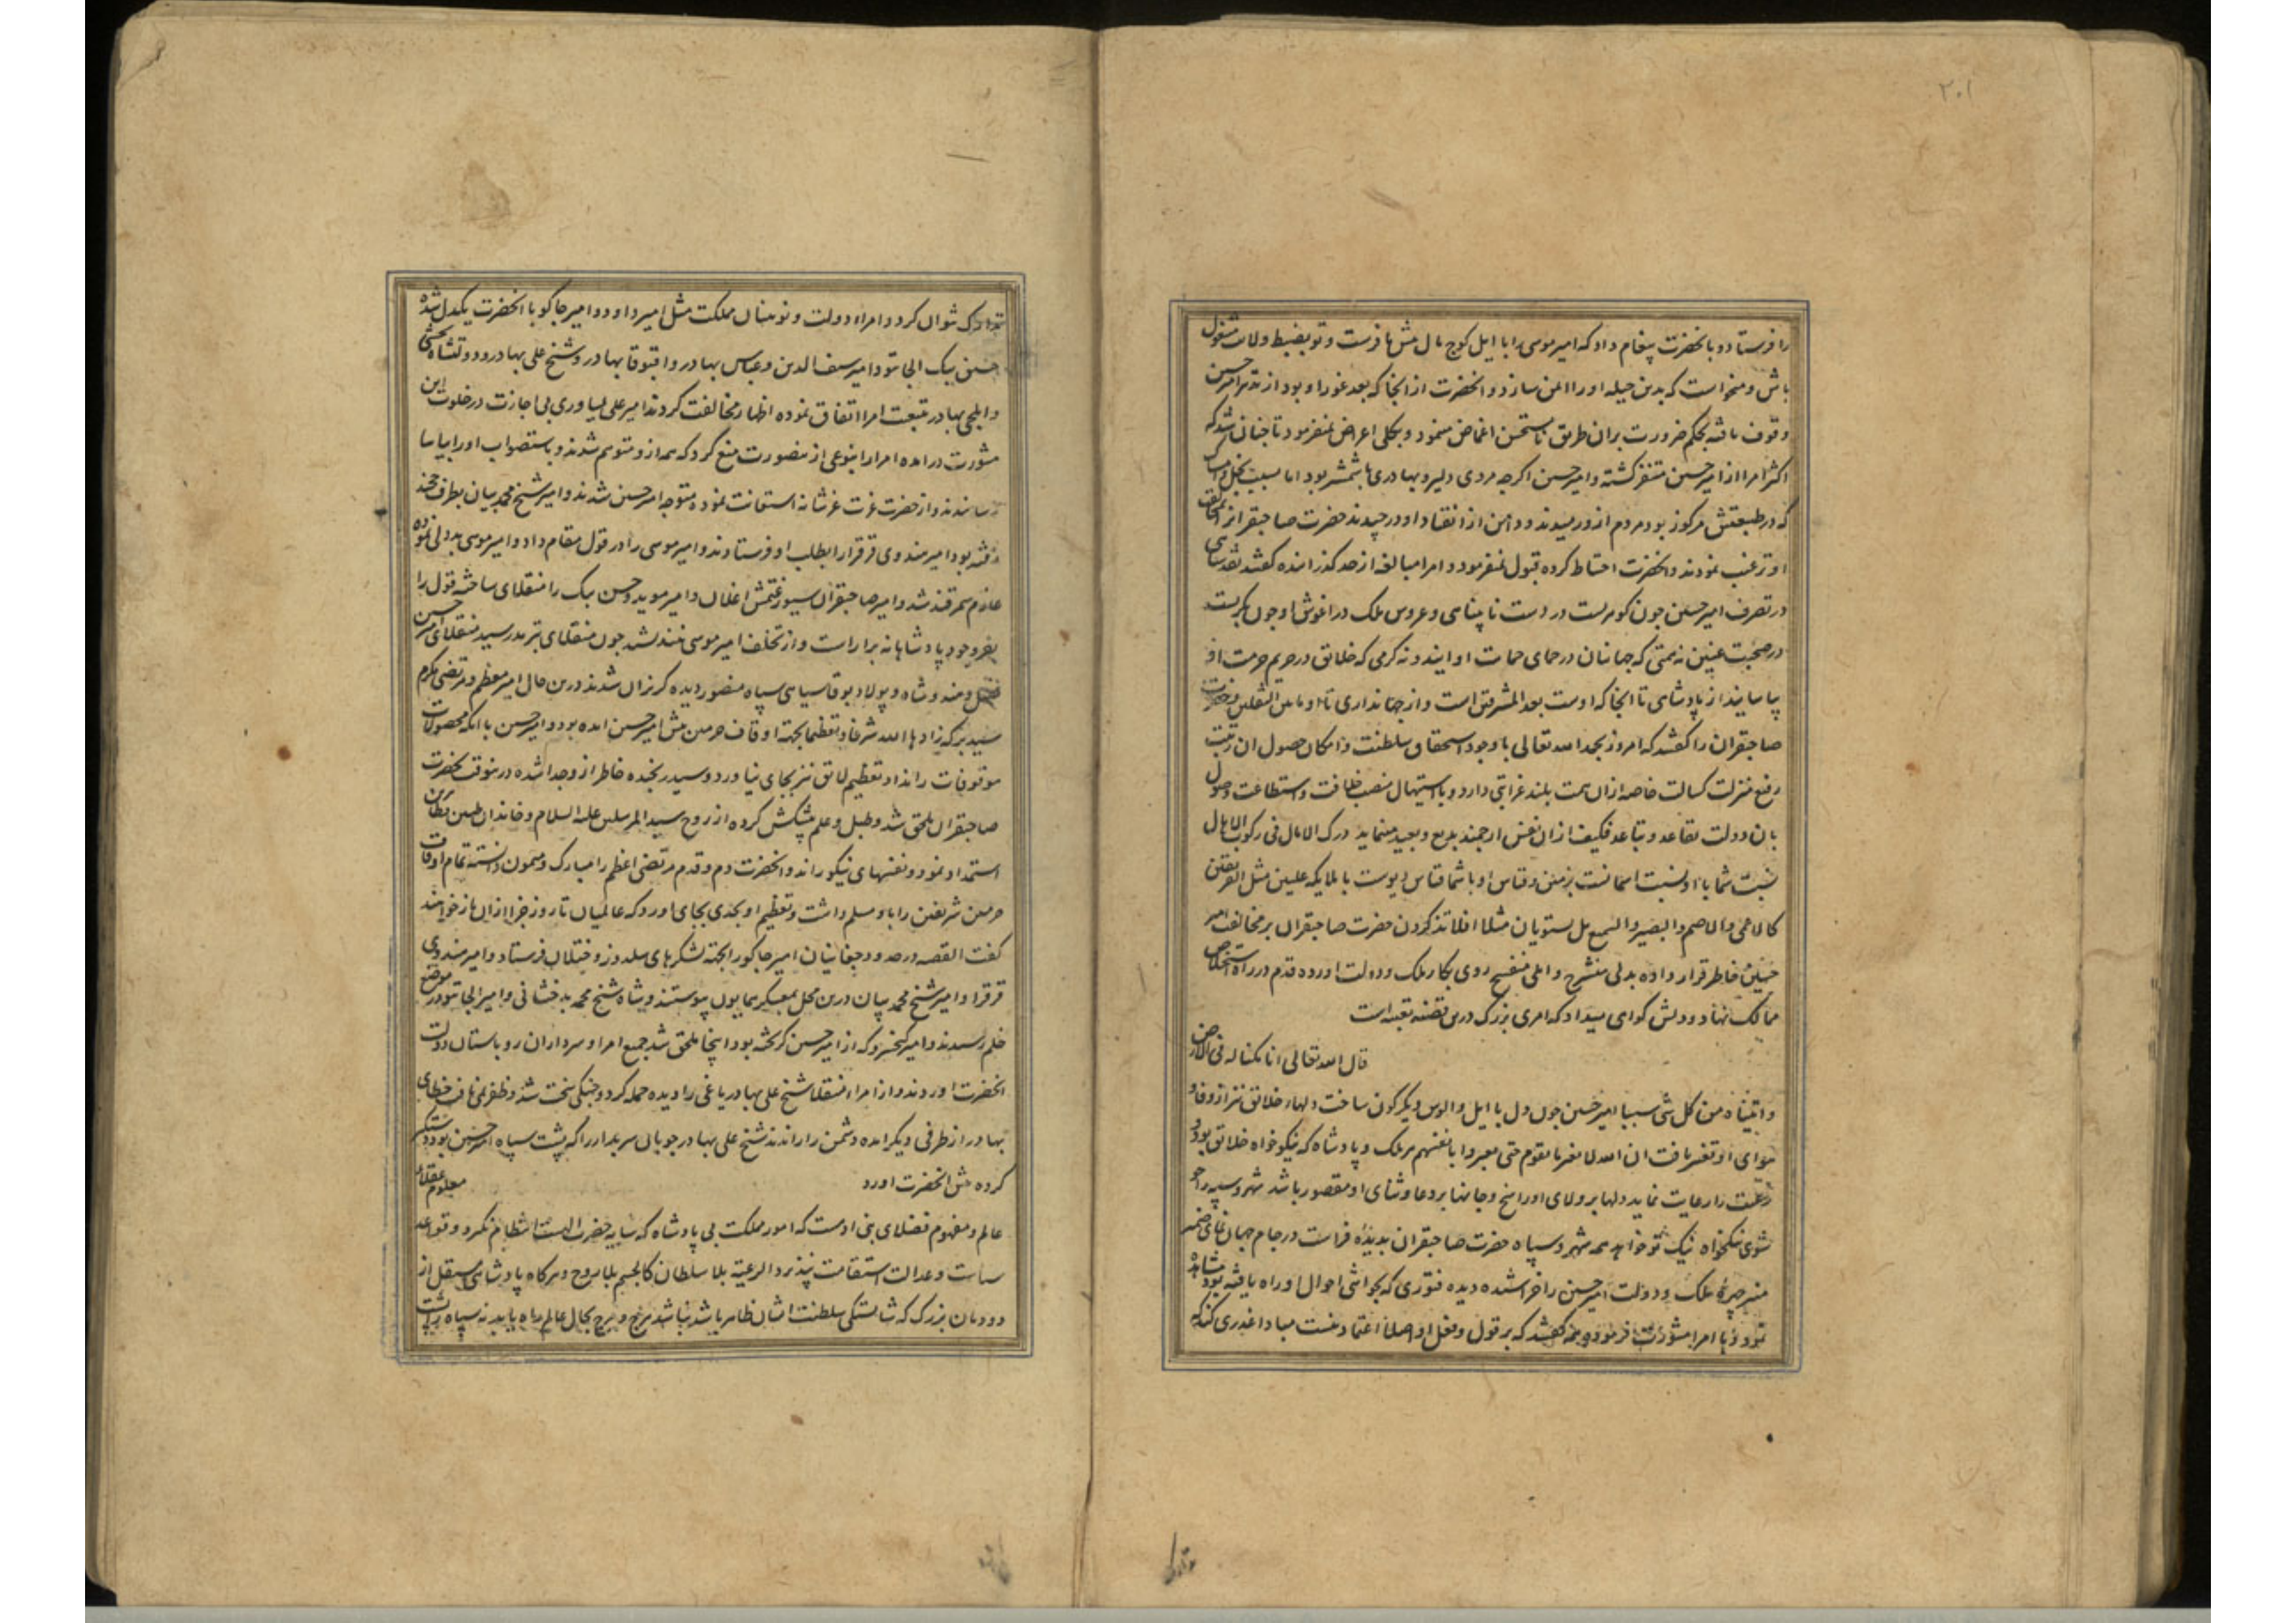 ۲۰۱
را فرستاد و بانحضرت پیغام داد که امیر موسی را با ایل کوچ مال پیش ما فرست و تو بضبط ولایت مشغول
باش و میخواست که بدین حیله او را ایمن سازد و انحضرت از انجا که بعد غور او بود از تدبیر امیر حسین
وقوف یافته بحکم ضرورت بران طریق نامستحسن اغماض مینمود و بکلی اعراض نمیفرمود تا چنان شد که
اکثر امرا از امیر حسین متنفر کشته و امیر حسین اکرچه مردی دلیر و بهادری با شمشیر بود اما بسبب بخل و
که در طبیعتش مرکوز بود مردم از و رمیدند و دامن از انقیاد او در چیدند حضرت صاحبقران را
او ترغیب نمودند و انحضرت احتیاط کرده قبول نمیفرمود و امرا مبالغه از حد کذرانیده کفتند
در تصرف امیر حسین چون کوهریست در دست نابینای و عروس ملک در اغوش او چون بکریست
در صحبت عنین نه همتی که جهانیان در حمای حمایت او ایند و نه کرمی که خلایق در حریم حرمت او
بیاسایند از پادشاهی تا انجا که اوست بعد المشرقین است و از جهانداری تا او ما بین الثقلین و حضرت
صاحبقران را کفتند که امروز بحمد الله تعالی با وجود استحقاق سلطنت و امکان حصول ان رتبت
رفیع منزلت کسالت خاصه ازان همت بلند غرابتی دارد و با استیهال منصب خلافت و استطاعت وصول
بان دولت تقاعد و تباعد فکیف ازان نفس ارجمند بدیع و بعید مینماید درک الامال فی رکوب الاهوال
نسبت شما با او نسبت اسمانست بزمین و قیاس او با شما قیاس دیوست با ملایکه علیین مثل الفریقین
کالاعمی والاصم والبصیر والسمیع هل یستویان مثلا افلا تذکرون حضرت صاحبقران بر مخالفت امیر
حسین خاطر قرار داده بدلی منشرح و املی منفسح روی بکار ملک و دولت اورده قدم در راه استخلاص
ممالک نهاد و دولتش کواهی میداد که امری بزرک درین قضیه تعبیه است
قال الله تعالی انا مکنا له فی الارض
و اتیناه من کل شی سببا امیر حسین چون دل با ایل و الوس دیکرکون ساخت دلهاء خلایق نیز از وفا و
هوای او تغییر یافت ان الله لا یغیر ما بقوم حتی یغیروا ما بانفسهم هر ملک و پادشاه که نیکوخواه خلایق بود و
رعیت را رعایت نماید دلها بر ولای او راسخ و جانها بر دعا و ثنای او مقصور باشد شهر و سپه را چو
شوی نیکخواه نیک تو خواهد همه شهر و سپاه حضرت صاحبقران بدیده فراست در جام جهان نمای ضمیر
منیر چهره ملک و دولت امیر حسین را خراشیده دیده فتوری که بحواشی احوال او راه یافته بود مشاهده
نمود و با امرا مشورت فرمود و همه کفتند که بر قول و فعل او اصلا اعتماد نیست مبادا غدری کند که
تدارک نتوان کرد و امراء دولت و نوینان مملکت مثل امیر داود و امیر جاکو با انحضرت یکدل شده
حسین بیک الجایتو و امیر سیف الدین و عباس بهادر و اقتوقا بهادر و شیخ علی بهادر و دولتشاه بخشی
و ایلچی بهادر بتبعیت امرا اتفاق نموده اظهار مخالفت کردند امیر علی یساوری بی اجازت در خلوت این
مشورت در امده امرا را بنوعی از نصورت منع کرد که همه از و متوهم شدند و باستصواب او را بیاسا
رسانیدند و از حضرت عزت عزشانه استعانت نموده متوجه امیر حسین شدند و امیر شیخ محمد بیان بطرف خجند
رفته بود امیر هندوی قرقرا را بطلب او فرستادند و امیر موسی را در قول مقام داد و امیر موسی بددلی نموده
عازم سمرقند شد و امیر صاحبقران سیورغتمش اغلان و امیر موید و حسین بیک را منقلای ساخته قول را
بفر وجود پادشاهانه بیاراست و از تخلف امیر موسی نیندیشید چون منقلای بترمد رسید منقلای امیر حسین
و هندوشاه و پولاد بوقا سیاهی سپاه منصور دیده کریزان شدند درین حال امیر معظم و مرتضی مکرم
سید برکه زادها الله شرفا و تعظیما بجهة اوقاف حرمین پیش امیر حسین امده بود و امیر حسین با انکه محصولات
موقوفات را نداد تعظیم لایق نیز بجای نیاورد و سید رنجیده خاطر از و جدا شده درینوقت بحضرت
صاحبقران ملحق شد و طبل و علم پیشکش کرده از روح سید المرسلین علیه السلام و خاندان طیبین
استمداد نمود و نفسهای نیکو راند و انحضرت دم و قدم مرتضی اعظم را مبارک و میمون دانسته تمام اوقاف
حرمین شریفین را باو مسلم داشت و تعظیم او بحدی بجای اورد که عالمیان تا روز جزا ازان باز خواهند
کفت القصه در حدود جغانیان امیر جاکو را بجهة لشکرهای سلدوز و ختلان فرستاد و امیر هندوی
قرقرا و امیر شیخ محمد بیان درین محل بمعسکر همایون پیوستند و شاه شیخ محمد بدخشانی و امیر الجایتو در موضع
خلم رسیدند و امیر کیخسرو که از امیر حسین کریخته بود اینجا ملحق شد جمیع امرا و سرداران رو باستان دولت
انحضرت اوردند و از امراء منقلا شیخ علی بهادر یاغی را دیده حمله کرد و جنکی سخت شد و ظفر
بهادر از طرفی دیکر امده دشمن را راندند شیخ علی بهادر جوبانی سربدار را که پشت سپاه امیر حسین بود دستکیر
کرده پیش انحضرت اورد معلوم عقلاء
عالم و مفهوم فضلای بنی ادمست که امور مملکت بی پادشاه که سایه حضرت الهیست انتظام نکیرد و قواعد
سیاست و عدالت استقامت نپذیرد الرعیة بلا سلطان کالجسم بلا روح و هرکاه پادشاهی مستقل از
دودمان بزرک که شایستکی سلطنت ایشان ظاهر باشد نباشد هرج و مرج بحال عالم راه یابد نه سپاه